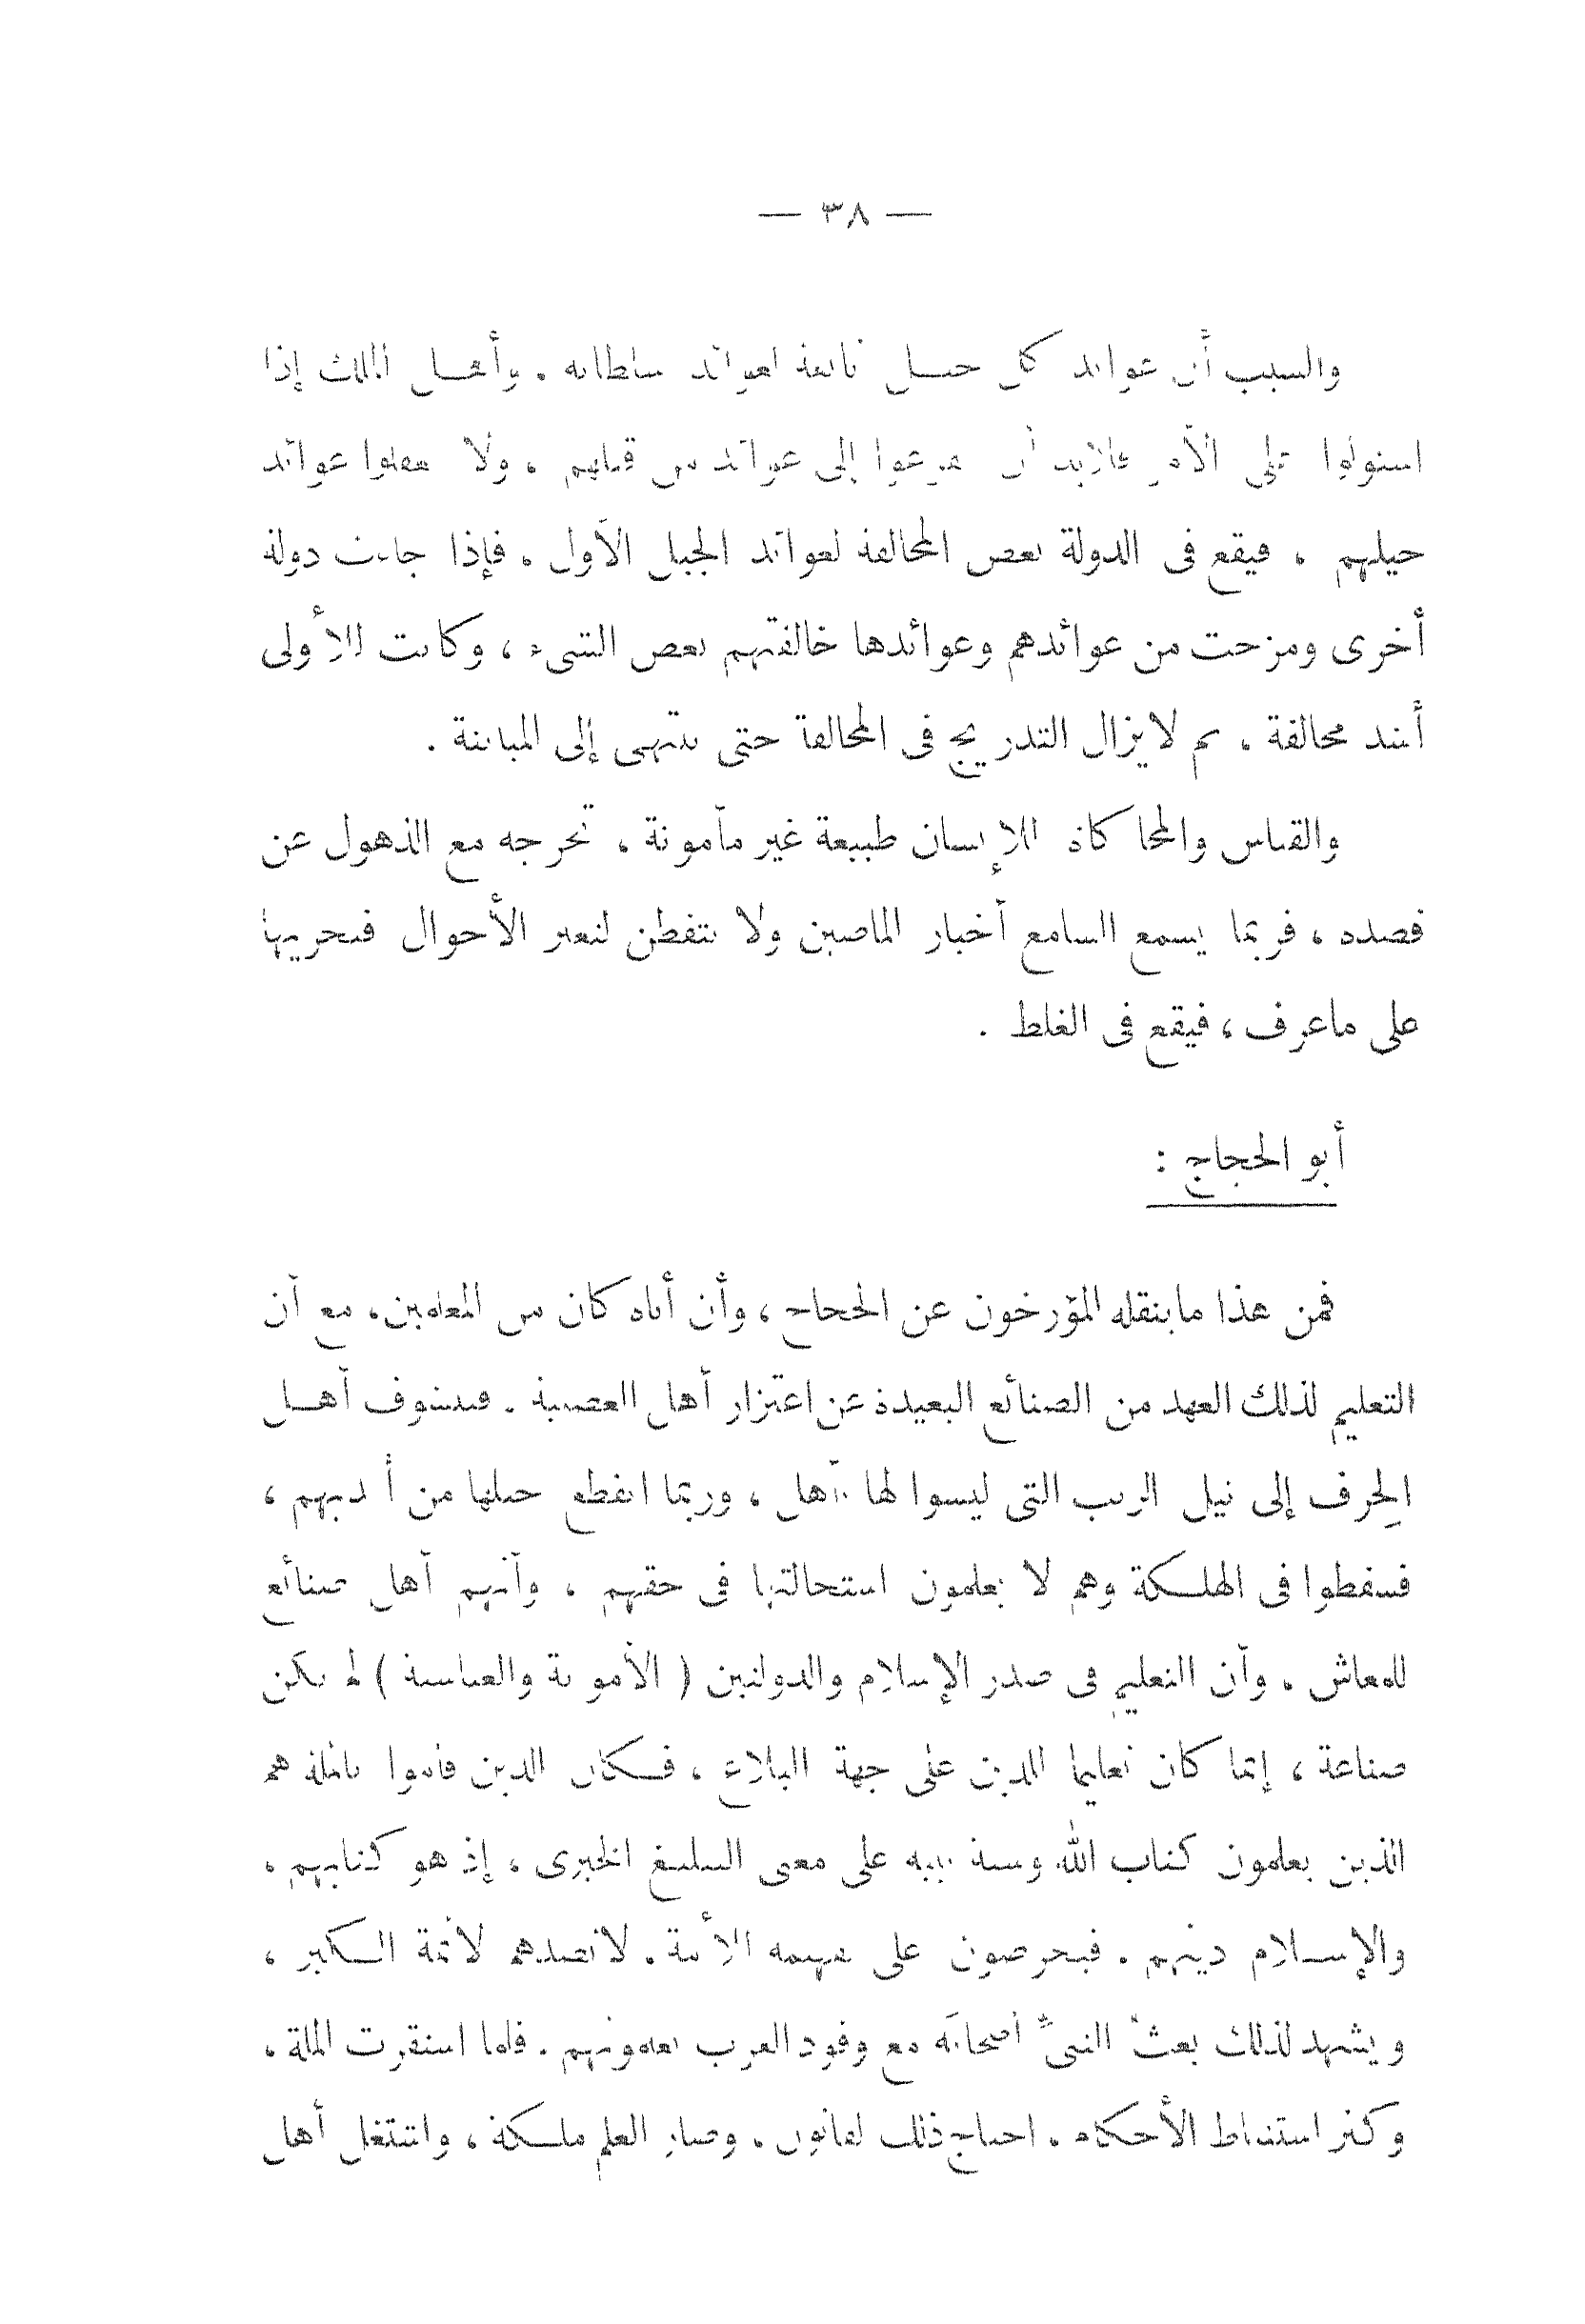 — ٣٨ —
والسبب أن عوائد كل جيل تابعة لعوائد سلطانه . وأهل الملك إذا
استولوا على الأمر فلابد أن يفزعوا إلى عوائد من قبلهم ، ولا يغفلوا عوائد
جيلهم . فيقع فى الدولة بعض المخالفة لعوائد الجيل الأول . فإذا جاءت دولة
أخرى ومزجت من عوائدهم وعوائدها خالفتهم بعض الشىء ، وكانت للأولى
أشد مخالفة . ثم لايزال التدريج فى المخالفة حتى ينتهى إلى المباينة .
والقياس والمحاكاة للإنسان طبيعة غير مأمونة ، تخرجه مع الذهول عن
قصده ، فربما يسمع السامع أخبار الماضين ولا يتفطن لتغير الأحوال فيجريها
على ماعرف ، فيقع فى الغلط .
أبو الحجاج :
فمن هذا ماينقله المؤرخون عن الحجاج ، وأن أباه كان من المعلمين ، مع أن
التعليم لذلك العهد من الصنائع البعيدة عن اعتزاز أهل العصبية . فيتشوف أهل
الحِرف إلى نيل الرتب التى ليسوا لها بأهل ، وربما انقطع حبلها من أيديهم ،
فسقطوا فى الهلكة وهم لا يعلمون استحالتها فى حقهم ، وأنهم أهل صنائع
للمعاش . وأن التعليم فى صدر الإسلام والدولتين ( الأموية والعباسية ) لم يكن
صناعة ، إنما كان تعليما للدين على جهة البلاغ ، فكان الذين قاموا بالملة هم
الذين يعلمون كتاب الله وسنة نبيه على معنى التبليغ الخبرى ، إذ هو كتابهم ،
والإسلام دينهم . فيحرصون على تفهيمه الأمة . لاتصدهم لائمة الكبر ،
ويشهد لذلك بعثُ النبىِّ أصحابَه مع وفود العرب يعلمونهم . فلما استقرت الملة ،
وكثر استنباط الأحكام . احتاج ذلك لقانون . وصار العلم ملكة ، واشتغل أهل